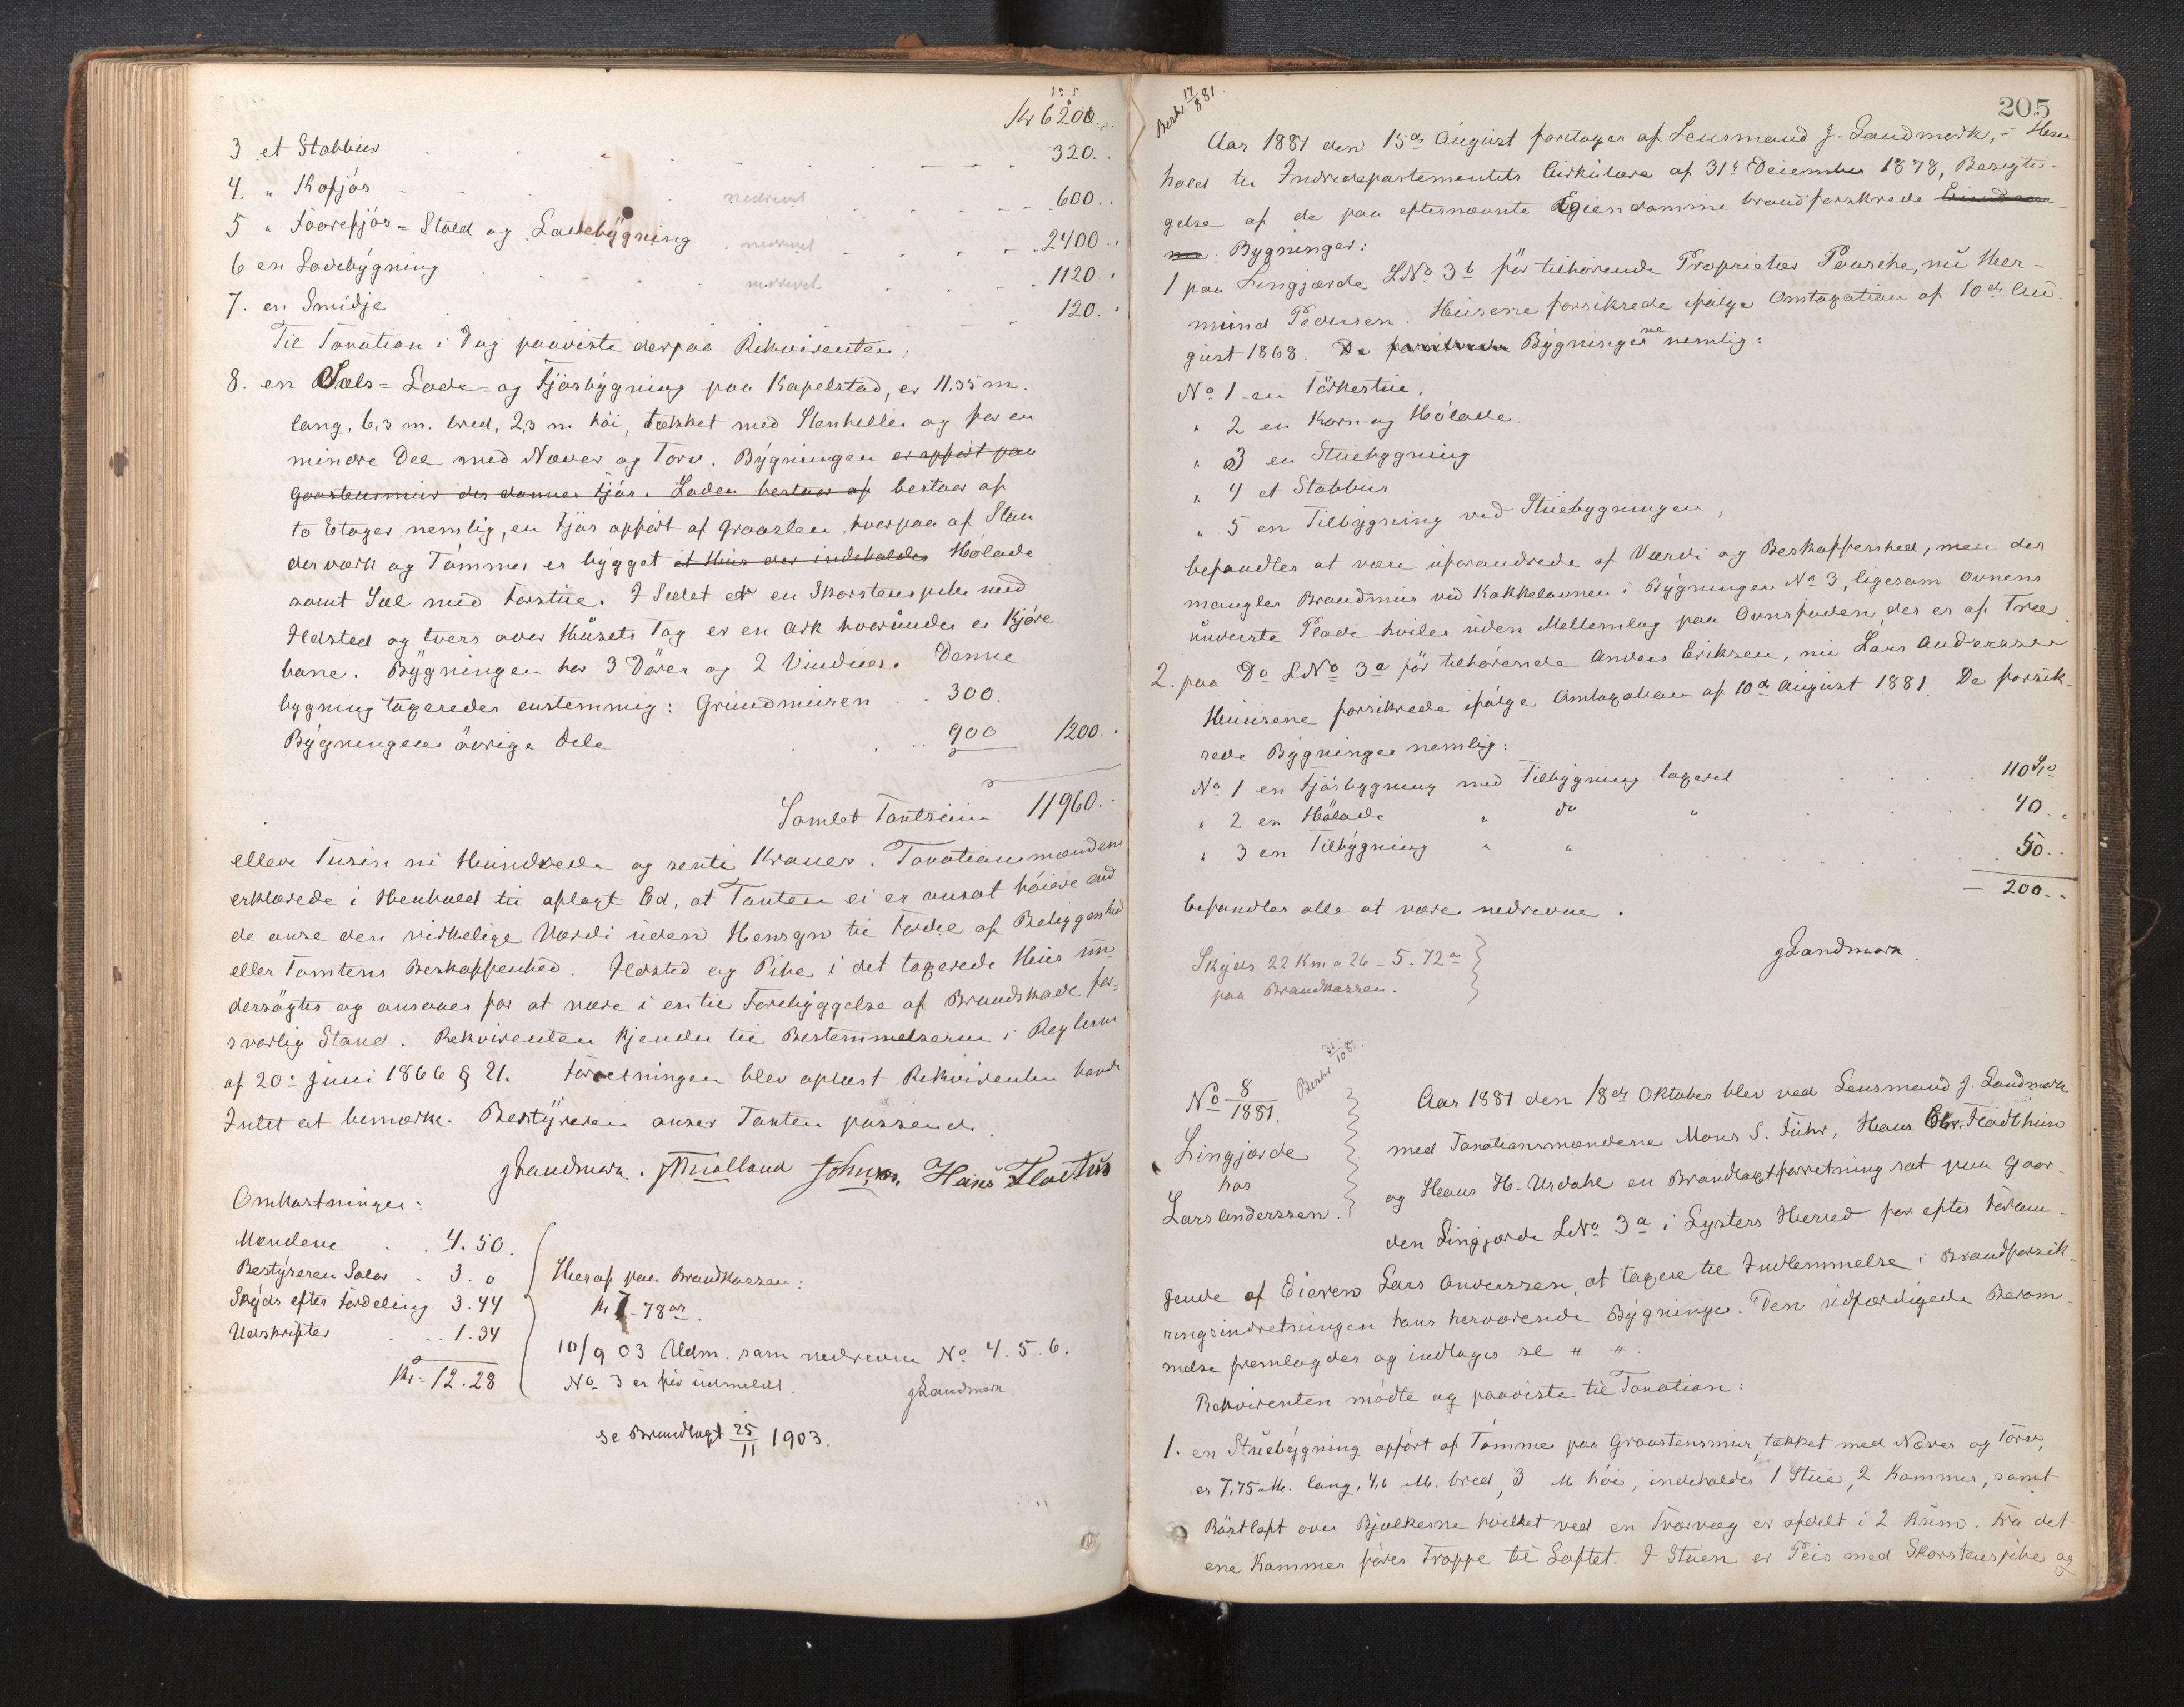 Kr 6200.
3 et Stabbur 320.
4. " Kofjös nedrevet 600.
5 " Faarefjös = Stald og Ladebygning nedrevet 2400.
6 en Ladebygning nedrevet 1120.
7. en Smidje 120.
Til Taxation i Dag paaviste derpaa Rekvirenten,
8. en Sæls = Lade = og Fjösbygning paa Kapelstad, er 11.35 m.
lang, 6,3 m. bred, 2,3 m höi, tækket med Stenheller og for en
mindre Del med Næver og Torv. Bygningen er opfört paa
Graastensmur der danner Fjös. Laden bestaar af bestaar af
to Etager nemlig, en Fjös opfört af Graasten, hvorpaa af Stan
derværk og Tömmer er bygget et Hus der indeholder Hölade
samt Sæl med Forstue. I Sælet er en Skorstenspibe med
Ildsted og tvers over Husets Tag er en Ark hvorunder er Kjöre
bane. Bygningen har 3 Dörer og 2 Vinduer. Denne
bygning taxeredes enstemmig: Grundmuren 300.
Bygningens övrige Dele 900 1200.
Samlet Taxtsum 11960.
elleve Tusin ni Hundrede og sexti Kroner. Taxationsmændene
erklærede i Henhold til aflagt Ed, at Taxten ei er ansat höiere end
de anse den virkelige Værdi uden Hensyn til Fordel af Beliggenhed
eller Tomtens Beskaffenhed. Ildsted og Pibe i det taxerede Hus un-
dersögtes og ansaaes for at være i en til Forebyggelse af Brandskade for-
svarlig Stand. Rekvirenten kjender til Bestemmelserne i Reglerne
af 20de Juni 1866 § 21. Forretningen blev oplæst Rekvirenten havde
Intet at bemærke. Bestyreren anser Taxten passende.
J Landmark. Hans Flattun
Omkostninger:
Mændene 4.50.
Bestyreren Salær 3.0
Skyds efter Fordeling 3.44
Udskrifter 1.34
Kr. 12.28
Heraf paa Brandkassen:
10/9 03 Udm. som nedrevne No. 4. 5. 6.
No 3 er för udmeldt. J Landmark
se Brandtaxt 25/11 1903.
205
Beskr 17/8 81.
Aar 1881 den 15de August foretages af Lensmand J. Landmark, i Hen
hold til Indredepartementets Cirkulære af 31te December 1878, Besigti-
gelse af de paa efternævnte Egiendomme brandforsikrede Eiendom
me: Bygninger:
1 paa Lingjærde LNo 3b för tilhörende Proprietær Paasche, nu Her-
mund Pedersen. Husene forsikrede ifölge Omtaxation af 10de Au-
gust 1868. De forsikrede Bygningerne nemlig:
No 1 en Törkestue,
" 2 en Korn og Hölade
" 3 en Stuebygning
" 4 et Stabbur
" 5 en Tilbygning ved Stuebygningen,
befandtes at være uforandrede af Værdi og Beskaffenhed, men der
mangler Brandmur ved Kakkelovnen i Bygningen No 3, ligesom Ovnens
underste Plade hviler uden Mellemlag paa Ovnsfoden, der er af Træ.
2. paa Do LNo 3a för tilhörende Anders Eriksen, nu Lars Anderssen
Husene forsikrede ifölge Omtaxation af 10de August 1881. De forsik-
rede Bygninger nemlig:
No 1 en Fjösbygning med Tilbygning taxeret 110 Spd
" 2 en Hölade " do " 40.
" 3 en Tilbygning " " 50.
200.
befandtes alle at være nedrevne.
Skyds 22 Km a 26 - 5.72 ör
paa Brandkassen.
J Landmark
Beskr 31/10 81.
No 8/1881.
Lingjærde
hos
Lars Anderssen.
Aar 1881 den 18de Oktober blev ved Lensmand J. Landmark
med Taxationsmændene Mons S. Fuhr, Hans Chr. Fladthun
og Hans H. Urdahl en Brandtaxtforretning sat paa Gaar-
den Lingjærde LNo 3a i Lysters Herred for efter Forlan-
gende af Eieren Lars Anderssen, at taxere til Indlemmelse i Brandforsik-
ringsindretningen hans herværende Bygninger. Den udfærdigede Beram-
melse fremlagdes og indtages se " "
Rekvirenten mödte og paaviste til Taxation:
1. en Stuebygning opfört af Tömmer paa Graastensmur, tækket med Næver og Törv,
er 7,75 M. lang, 4,6 M. bred, 3 M höi, indeholder 1 Stue, 2 Kammer, samt
Röstloft over Bjelkerne hvilket ved en Tværvæg er afdelt i 2 Rum. Fra det
ene Kammer förer Trappe til Loftet. I Stuen er Peis med Skorstenspibe og